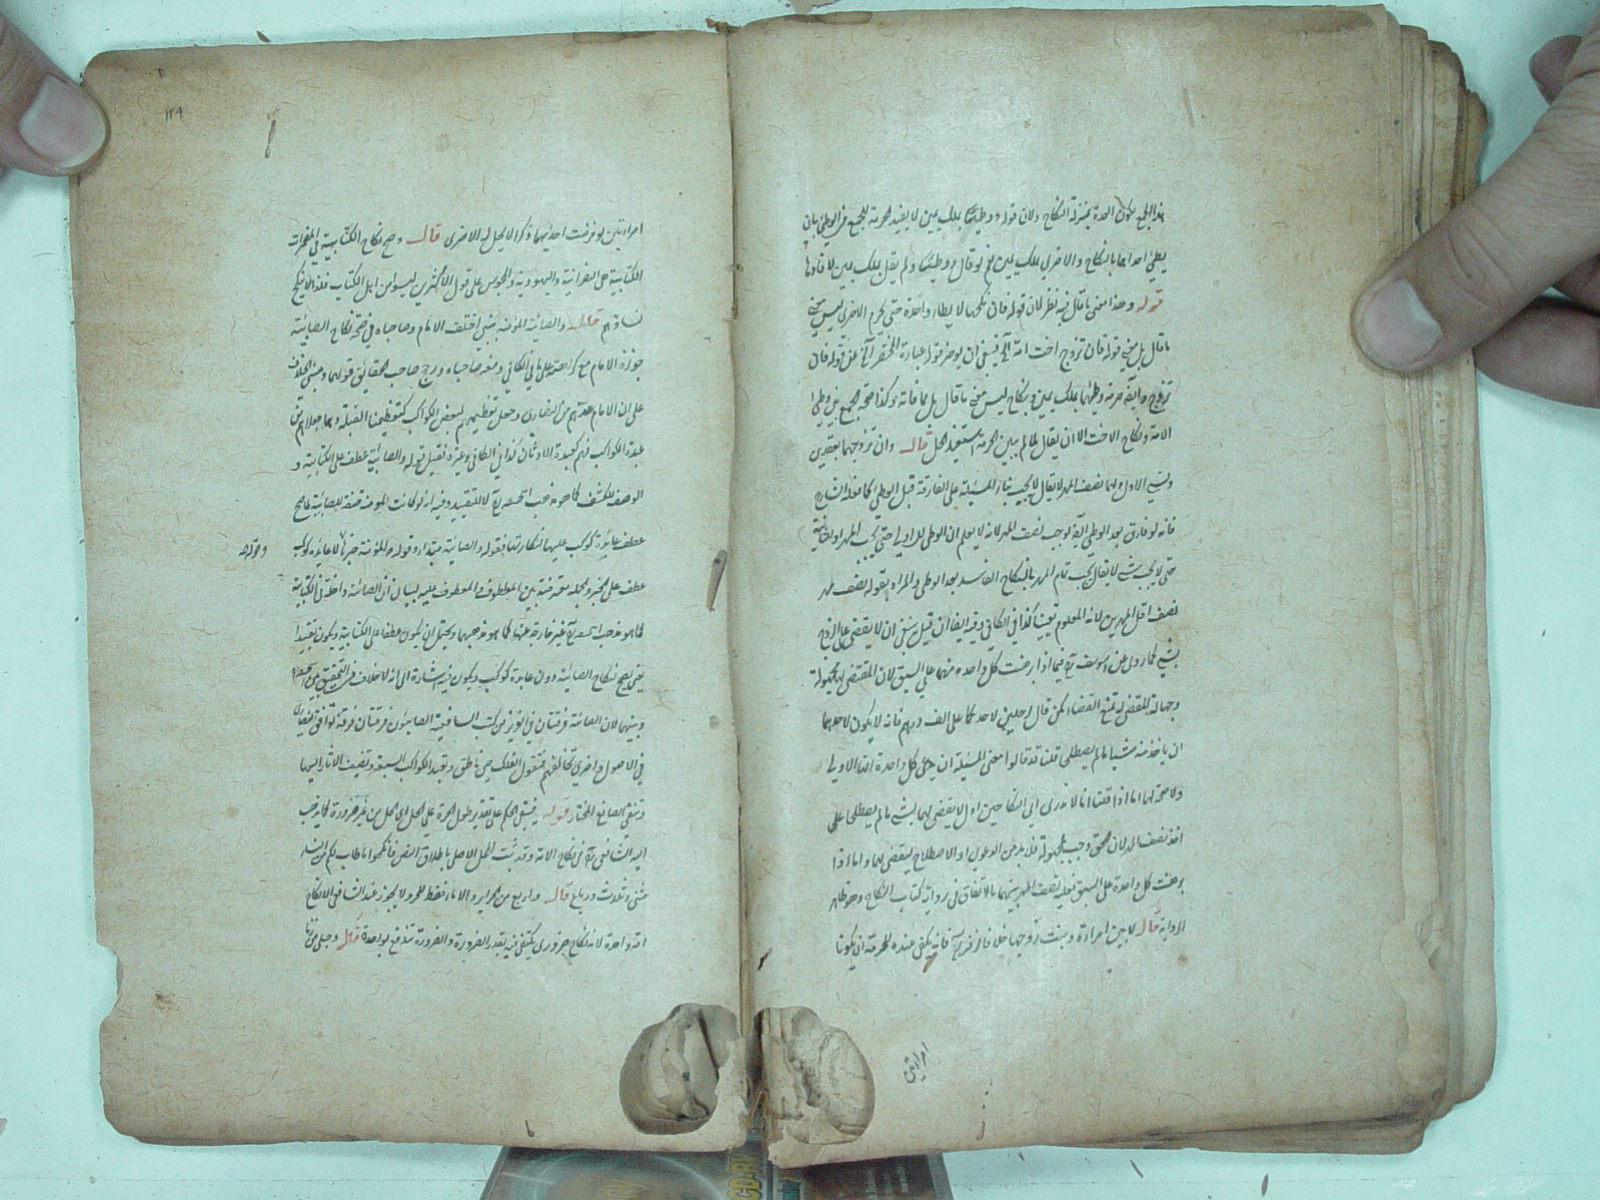 هذا الجمع لكون العدة بمنزلة النكاح ولان قوله ووطيئا بملك يمين لا يفيد حرمة الجمع في الوطئ بان
يطئ احداهما بالنكاح والاخرى بملك يمين نعم لو قال ووطيئا ولم يقل بملك يمين لافادها
قوله وهذا معنى ما قال فيه نظر لان قوله فان نكحها لا يطأ واحدة حتى يحرم الاخرى ليس معنى
ما قال بل معنى قوله فان تزوج اخت امته الخ فينبغي ان يؤخر قوله عبارة المختصر الخ عن قوله فان
تزوج وايضا حرمة وطئهما بملك يمين ونكاح ليس معنى ما قال بل مما فاته وكذا صحة الجمع بين وطئ
الامة ونكاح الاخت الا ان يقال لما لم يبين الحرمة استفيد الحل قال وان تزوجهما بعقدين
ونسي الاول ولهما نصف المهر لا يقال لا يجب بناء المسئلة على الفارقة قبل الوطئ كما فعله الشارح
فانه لو فارق بعد الوطئ ايضا يوجب نصف المهر لانه لا يعلم ان الوطئ للاولى حتى يجب المهر او للثانية
حتى لا يجب شيء لا يقال يجب تمام المهر بالنكاح الفاسد بعد الوطئ والمراد بقوله نصف مهر
نصف اقل المهرين لانه المعلوم يقينا كذا في الكافي وفيه ايضا ان قيل ينبغي ان لا يقضى على الزوج
بشيء كما روي عن ابي يوسف رح فيما اذا برهنت كل واحدة منهما على السبق لان المقتضى لها مجهولة
وجهالة المقضي له تمنع القضاء كمن قال لرجلين لاحدكما علي الف درهم فانه لا يكون لاحدهما
ان ياخذ منه شيئا ما لم يصطلحا قلنا قد قالوا معنى المسئلة ان يدعي كل واحدة انها الاولى
ولا حجة لهما اما اذا قالتا لا ندري اي النكاحين اول لا يقضى لهما بشيء ما لم يصطلحا على
اخذ نصف المهر لان الحق وجب لمجهولة فلا بد من الدعوى او الاصطلاح ليقضى لهما واما اذا
برهنت كل واحدة على السبق فعليه نصف المهر بينهما بالاتفاق في رواية كتاب النكاح وهو ظاهر
الرواية قال لا بين امرأة وبنت زوجها خلافا لزفر رح فانه يكفي عنده للحرمة ان يكونا
امرأتين
١٢٩
امرأتين لو فرضت احديهما ذكرا لا يحل له الاخرى قال وصح نكاح الكتابية في المضمرات
الكتابية هي النصرانية واليهودية والمجوس على قول الاكثرين ليسوا من اهل الكتاب فلذا لا ينكح
نساؤهم قال والصابئة المؤمنة بنبي اختلف الامام وصاحباه في صحة نكاح الصابئية
جوزه الامام مع كراهته على ما في الكافي ومنعه صاحباه ورجح صاحب الحقائق قولهما ومبنى الخلاف
على ان الامام عدهم من النصارى وجعل تعظيمهم لبعض الكواكب كتعظيمنا القبلة وهما جعلاهم من
عبدة الكواكب فهم كعبدة الاوثان كذا في الكافي وغيره فقيل قوله والصابئية عطف على الكتابية و
الوصف للكشف كما هو مذهب ابي حنيفة رح لا للتقييد وفيه انه لو كانت المؤمنة صفة للصابئية لما صح
عطف عابدة كوكب عليها لنكارتها فقوله والصابئة مبتدأ وقوله المؤمنة خبره لا عابدة كوكب
وقوله
عطف على الخبر والجملة معترضة بين المعطوف والمعطوف عليه لبيان ان الصابئة داخلة في الكتابية
كما هو مذهب ابي حنيفة رح غير خارجة عنها كما هو مذهبهما ويحتمل ان يكون عطفا على الكتابية ويكون تقييدا
يعني يصح نكاح الصابئة دون عابدة كوكب ويكون فيه اشارة الى انه لا خلاف في التحقيق بين ابي حنيفة
وبينهما لان الصابئة فرقتان في العزيز من كتب الشافعية الصابئون فرقتان فرقة توافق النصارى
في الاصول واخرى تخالفهم فتقول الفلك حي ناطق وتعبد الكواكب السبعة وتضيف الآثار اليها
وتنفي الصانع المختار قوله فيبقى الحكم على تقدير طول الحرة على الحل اي الحل من غير ضرورة كما ذهب
اليه الشافعي رح في نكاح الامة وقد ثبت الحل الاصلي باطلاق النص فانكحوا ما طاب لكم من النساء
مثنى وثلاث ورباع قال واربع من الحرائر والاماء فقط للحر ولا يجوز عند الشافعي الا نكاح
امة واحدة لانه نكاح ضروري يكتفى فيه بقدر الضرورة والضرورة تندفع بواحدة قال وحبلى من زنا